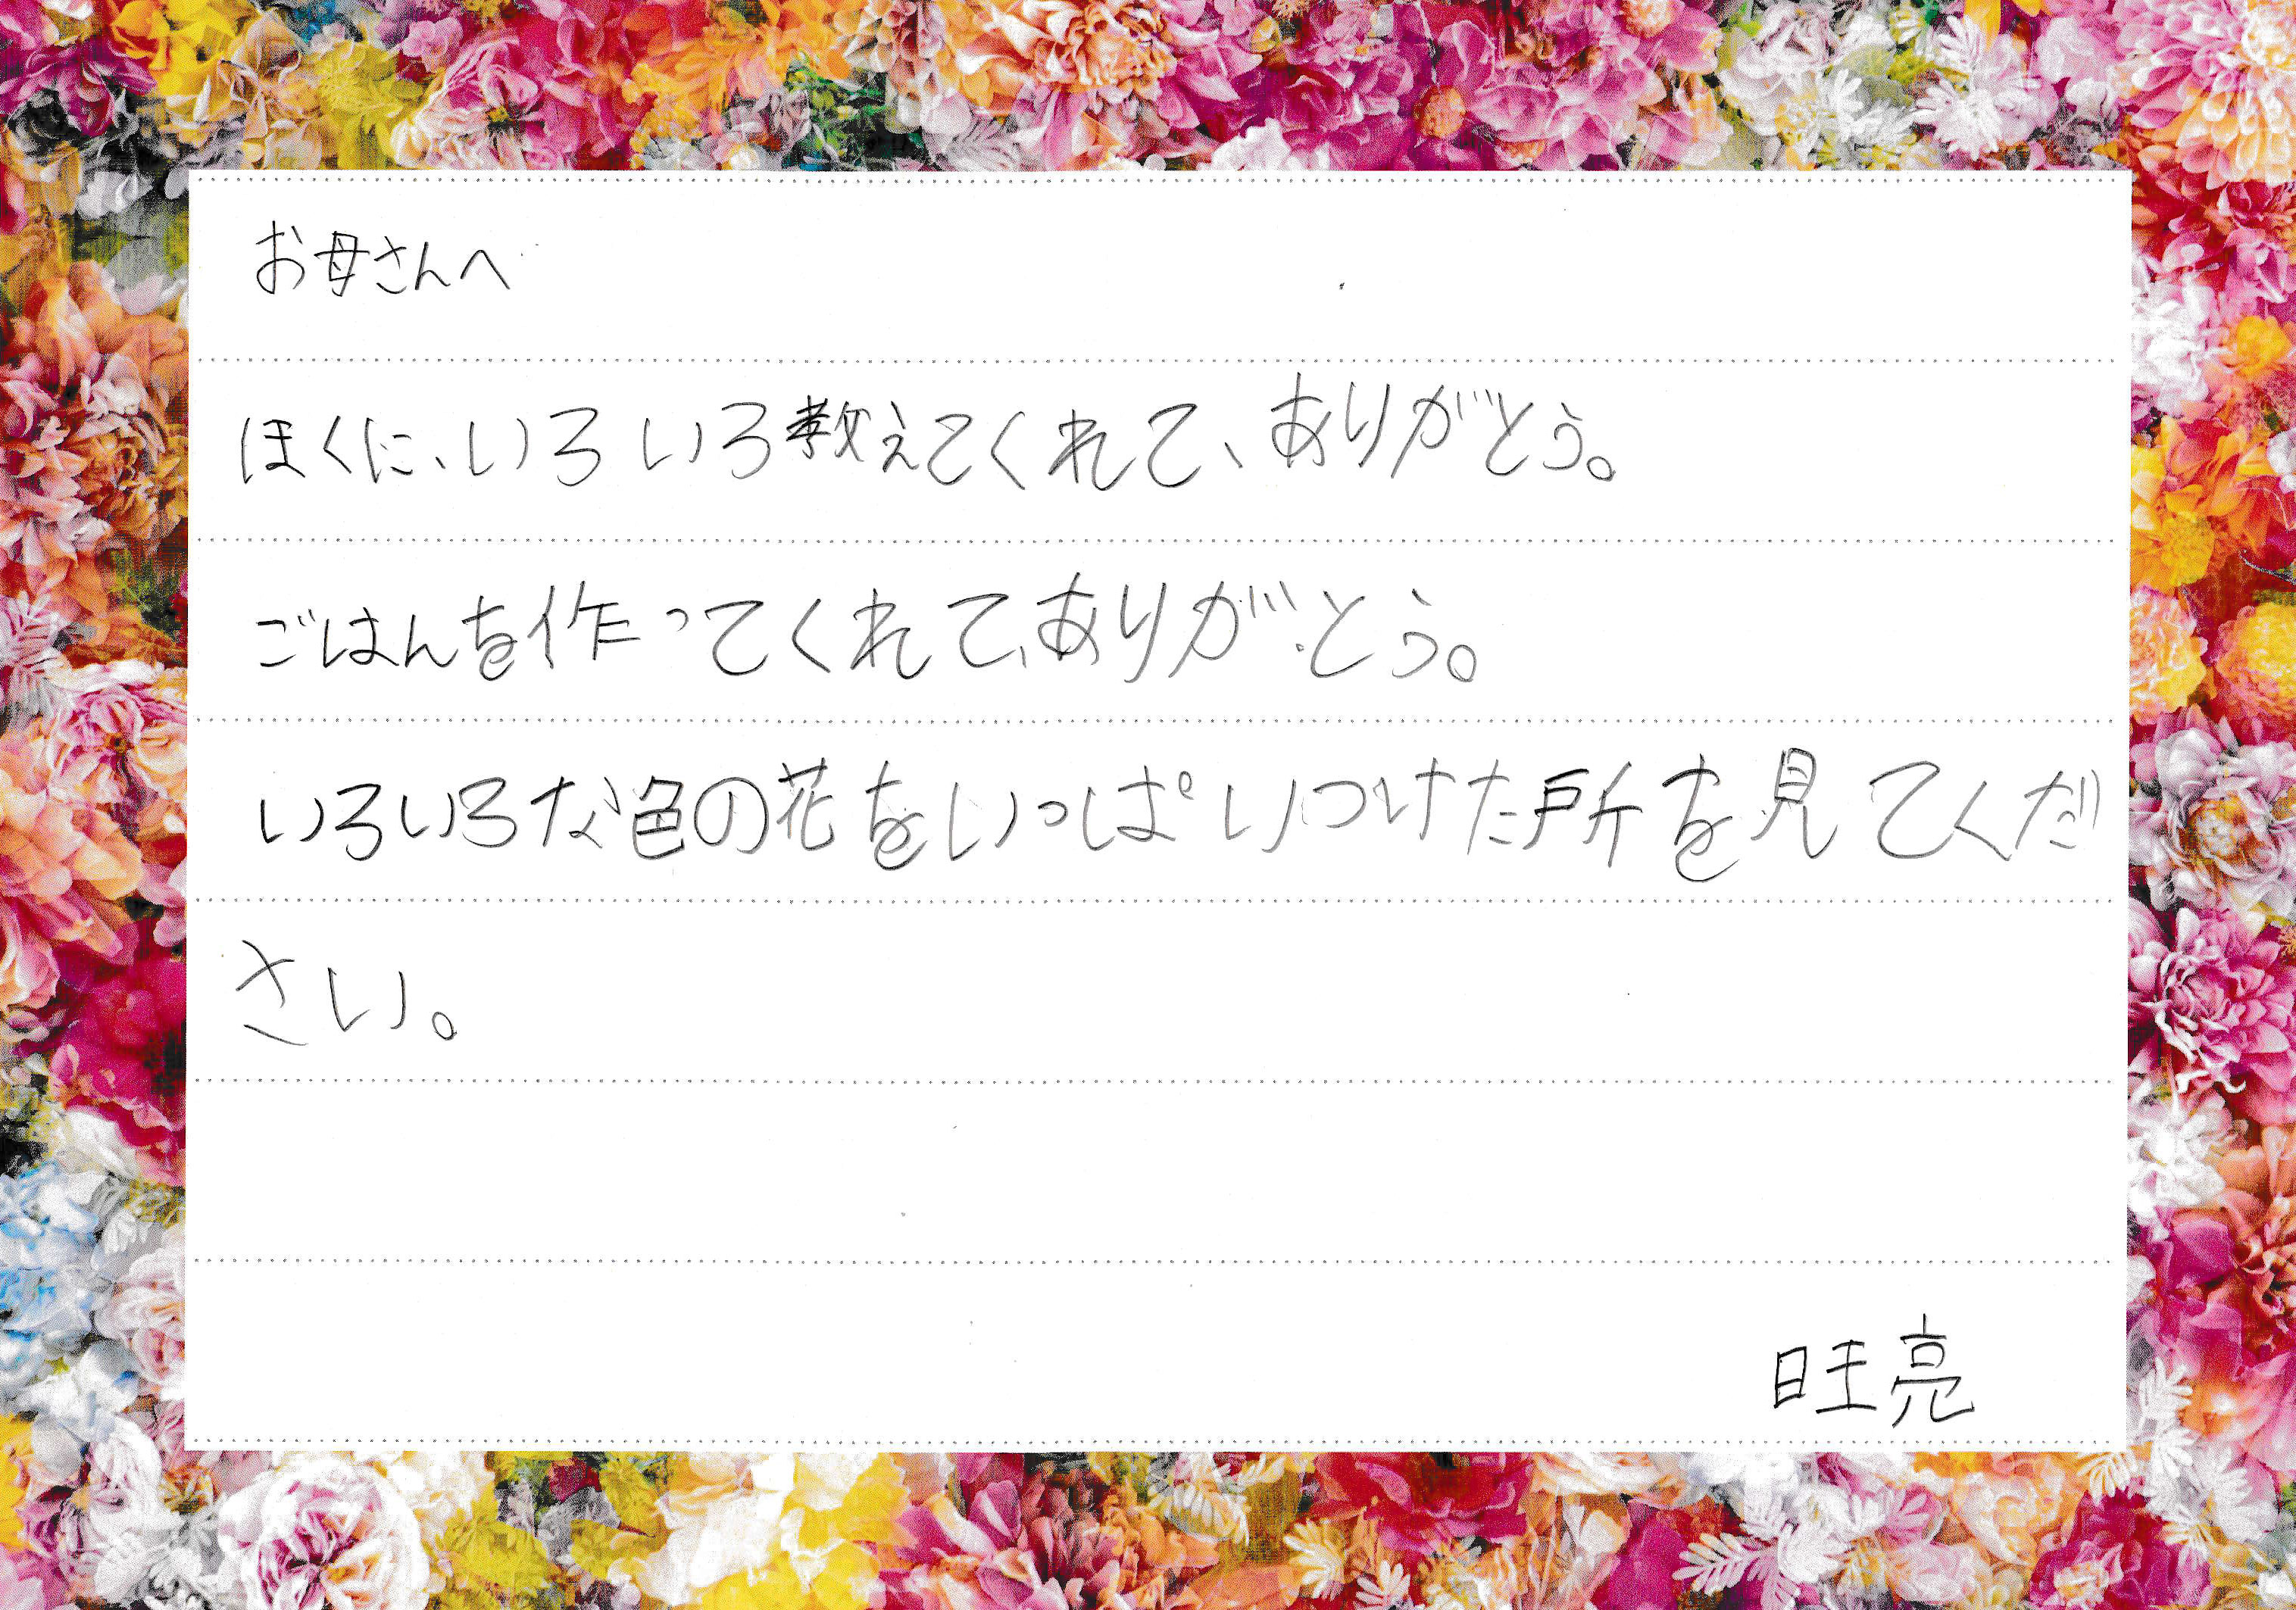 お母さんへ
ほくに、いろいろ教えてくれて、ありがとう。
ごはんを作ってくれて、ありがとう。
いろいろな色の花をいっぱいつけた所を見てくだ
さい。
旺亮